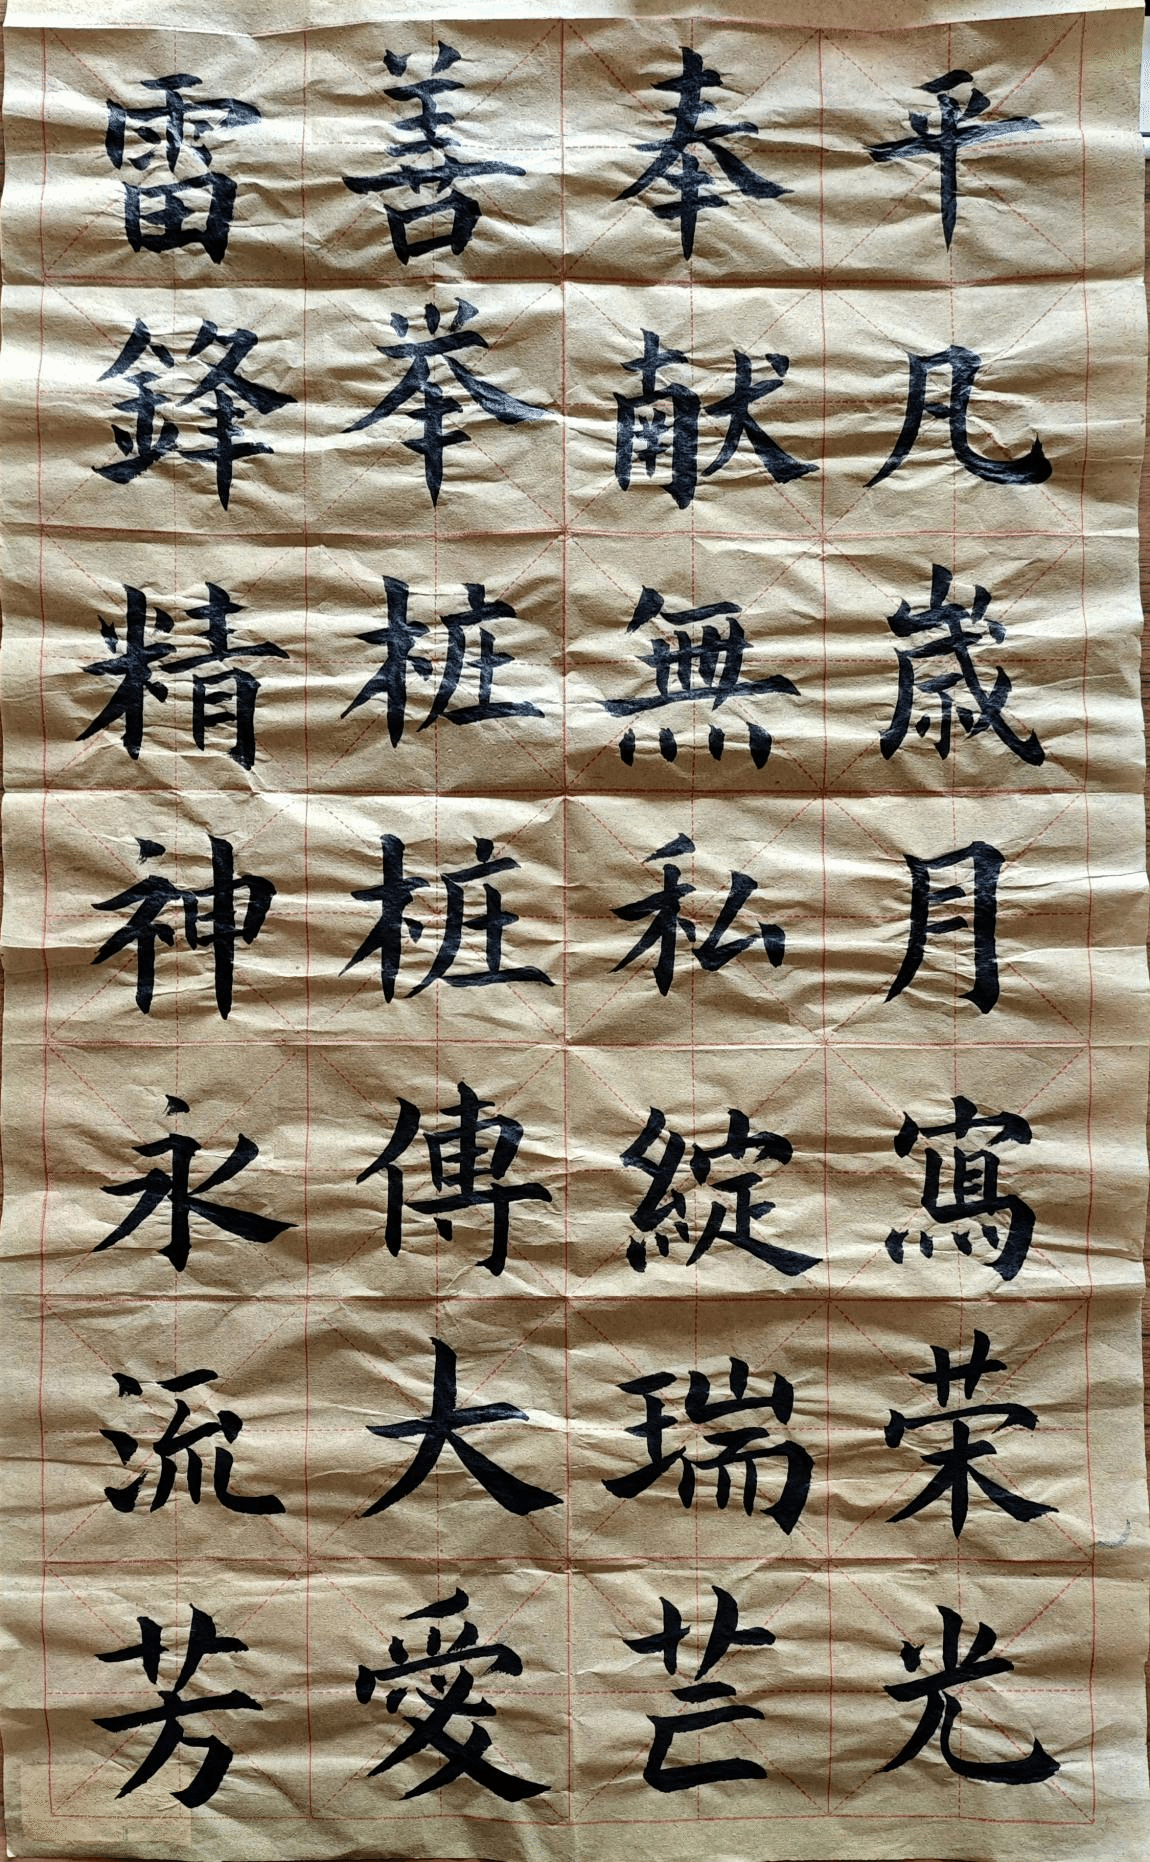 平凡歳月寫荣光
奉献無私綻瑞芒
善举桩桩傳大愛
雷鋒精神永流芳